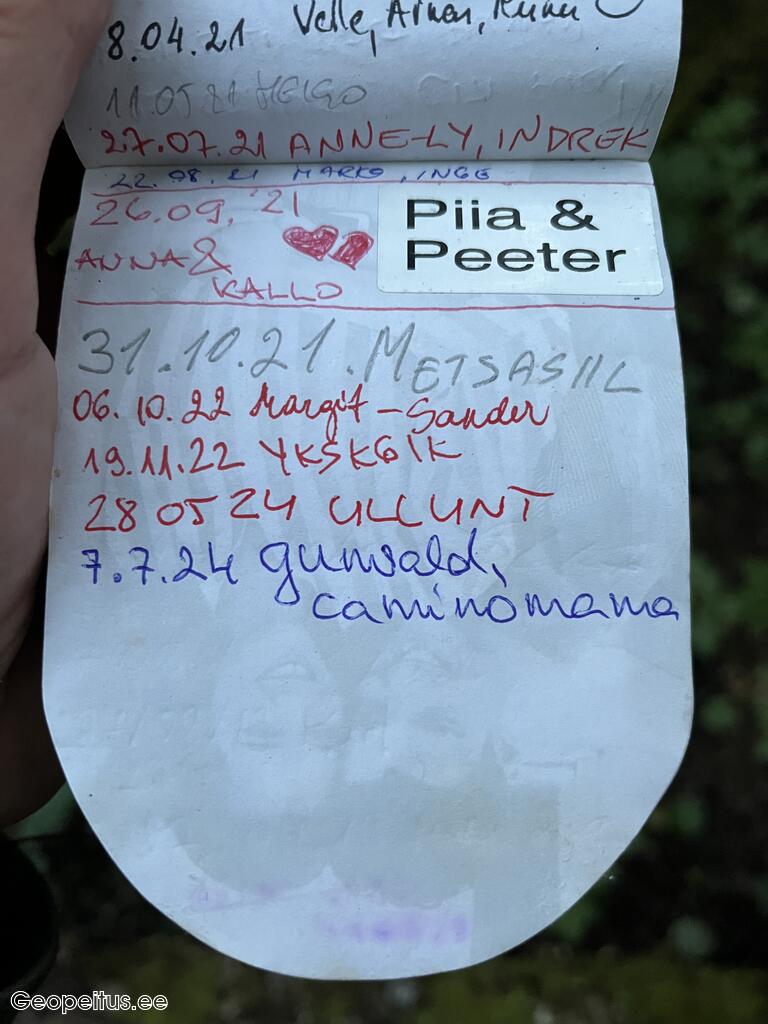 8.04.21 Velle,
11.05 21 HELGO
27.07.21 ANNE-LY, INDREK
22.08.21 MARKO, INGE
26.09.'21
ANNA&
KALLO
Piia &
Peeter
31.10.21. METSASIIL
06.10.22 Margit-Sander
19.11.22 YKSKÕIK
28 05 24 ULLUNT
7.7.24 gunvald,
caminomama
Geopeitus.ee